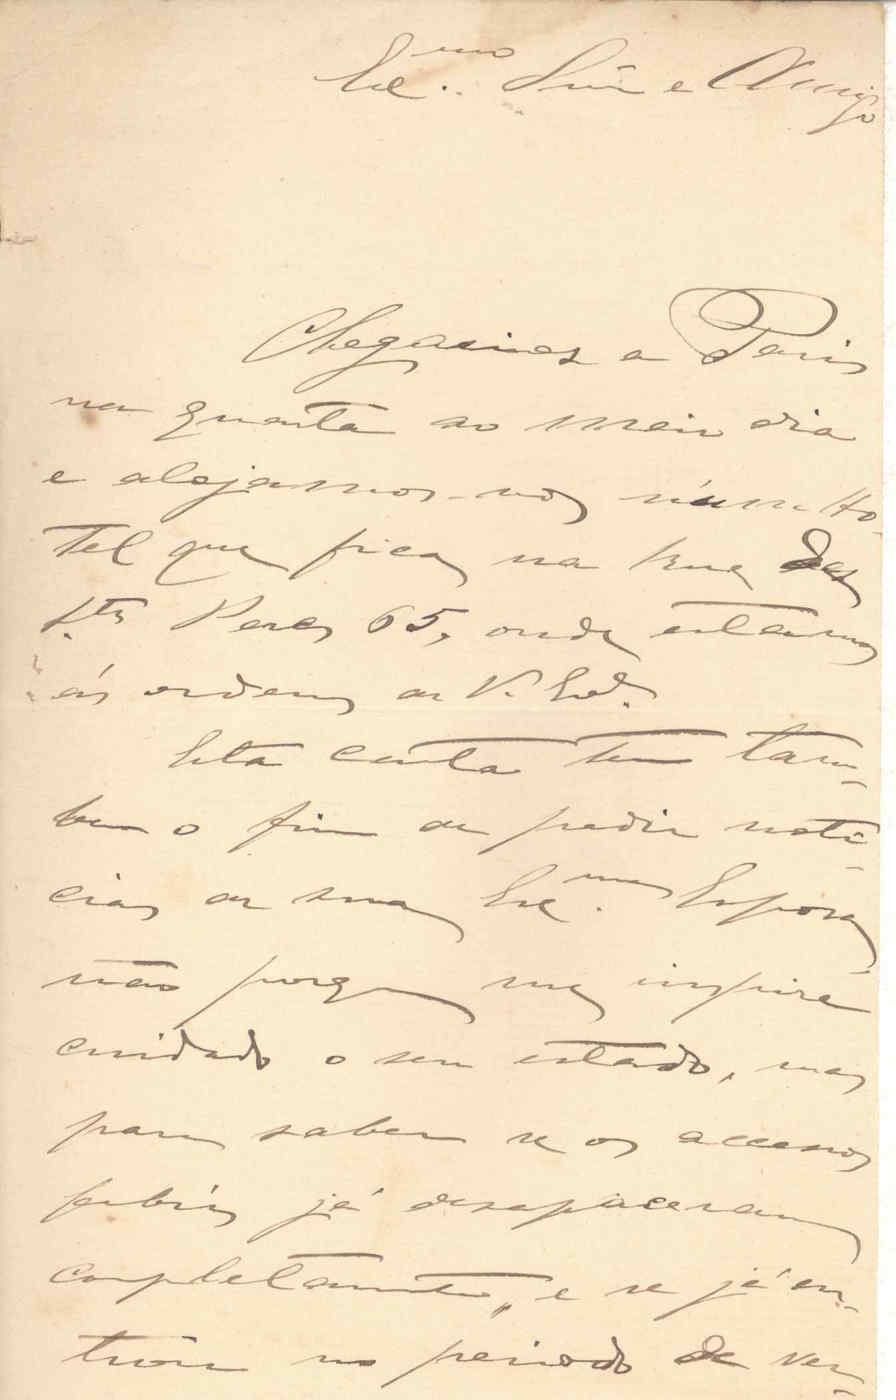 Exc.mo Snr e Amigo
Chegamos a Paris
na quarta ao meio dia
e alojamos-nos n'um Ho-
tel que fica na Rue des
Sts Peres 65, onde estamos
ás ordens de V. Exa.
Esta carta tem tam-
bem o fim de pedir noti-
cias de sua Exc.ma Esposa
não porque me inspire
cuidado o seu estado, mas
para saber se os accesos
febris já desapaceram
completamente, e se já en-
trou no periodo de ver-